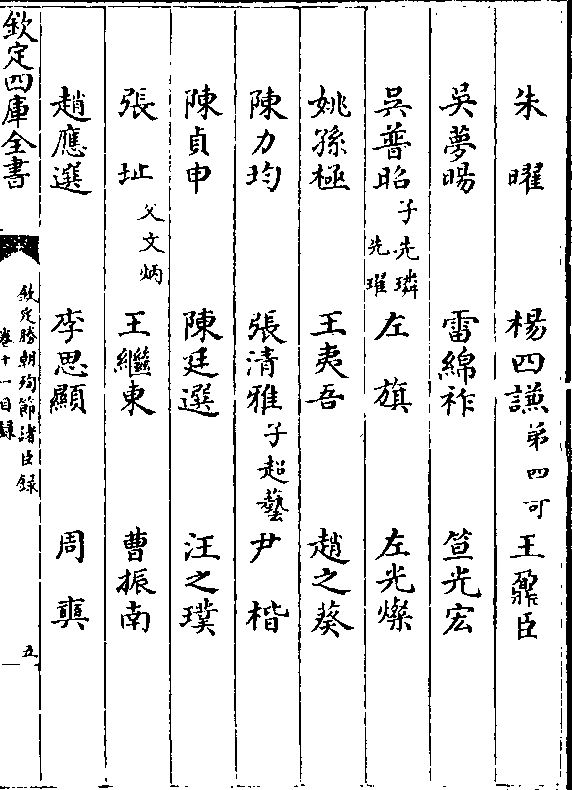 朱曜　楊四謙弟四可　王鼐臣
吳夢暘　雷綿祚　笪光宏
吳普昭子先璘先璀　左旗　左光燦
姚孫極　王夷吾　趙之葵
陳力均　張清雅子超藝　尹楷
陳貞申　陳廷選　汪之璞
張址父文炳　王繼東　曹振南
趙應選　李思顯　周
欽定四庫全書
欽定勝朝殉節諸臣錄
卷十一目錄
五